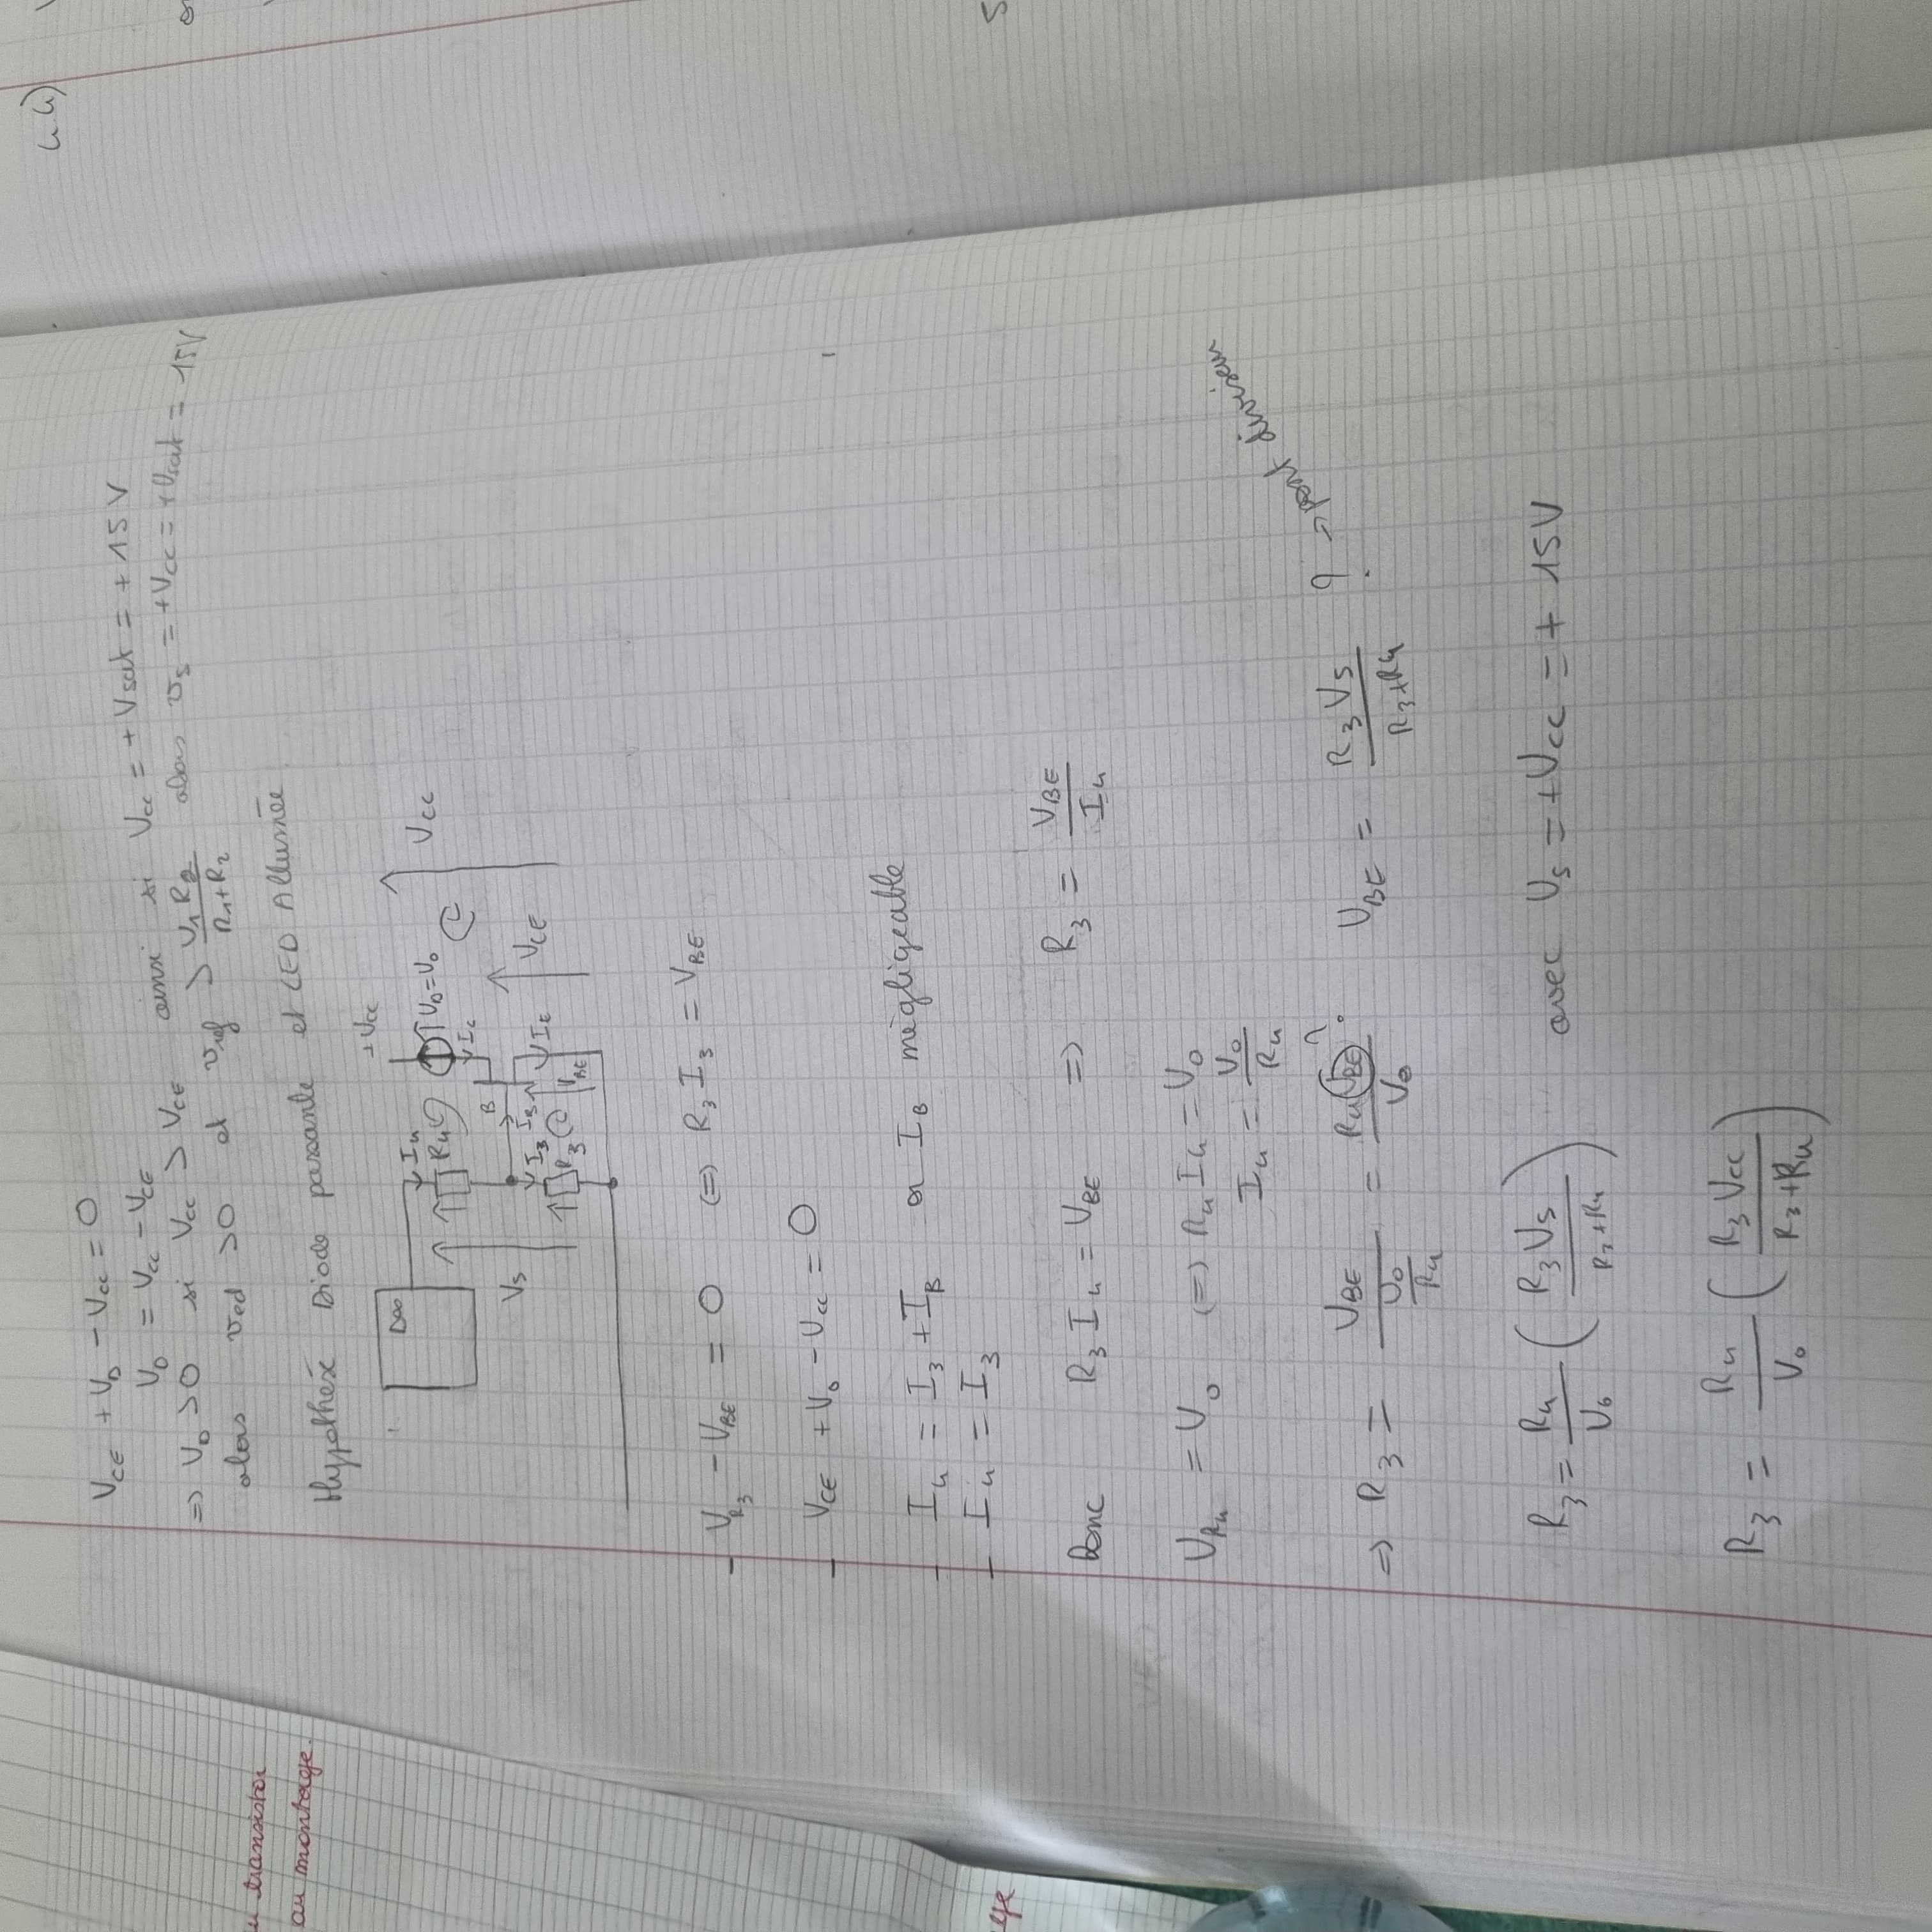 V_CE + V_D - V_CC = 0
V_D = V_CC - V_CE
=> V_D > 0 si V_CC > V_CE ainsi si V_CC = + Vsat = + 15 V
alors ved > 0 et v_ref > V_1 R_2 / R_1+R_2 alors v_s = +V_CC = +Vsat = - 15V
Hypothèse Diode passante et LED Allumée
+V_CC
I_4
R_4
V_D=V_0
I_C
V_CC
V_S
B
I_B
I_3
R_3
V_BE
I_E
V_CE
- V_R3 - V_BE = 0 (=) R_3 I_3 = V_BE
- V_CE + V_D - V_CC = 0
- I_4 = I_3 + I_B or I_B négligeable
- I_4 = I_3
Donc R_3 I_4 = V_BE => R_3 = V_BE / I_4
V_R4 = V_0 (=) R_4 I_4 = V_0
I_4 = V_0 / R_4
=> R_3 = V_BE / (V_0 / R_4) = R_4 V_BE / V_0 ? V_BE = R_3 V_S / R_3+R_4 ? -> pont diviseur
R_3 = R_4 / V_0 ( R_3 V_S / R_3+R_4 ) avec V_S = +V_CC = + 15V
R_3 = R_4 / V_0 ( R_3 V_CC / R_3+R_4 )
transistor
au montage.
4.4)